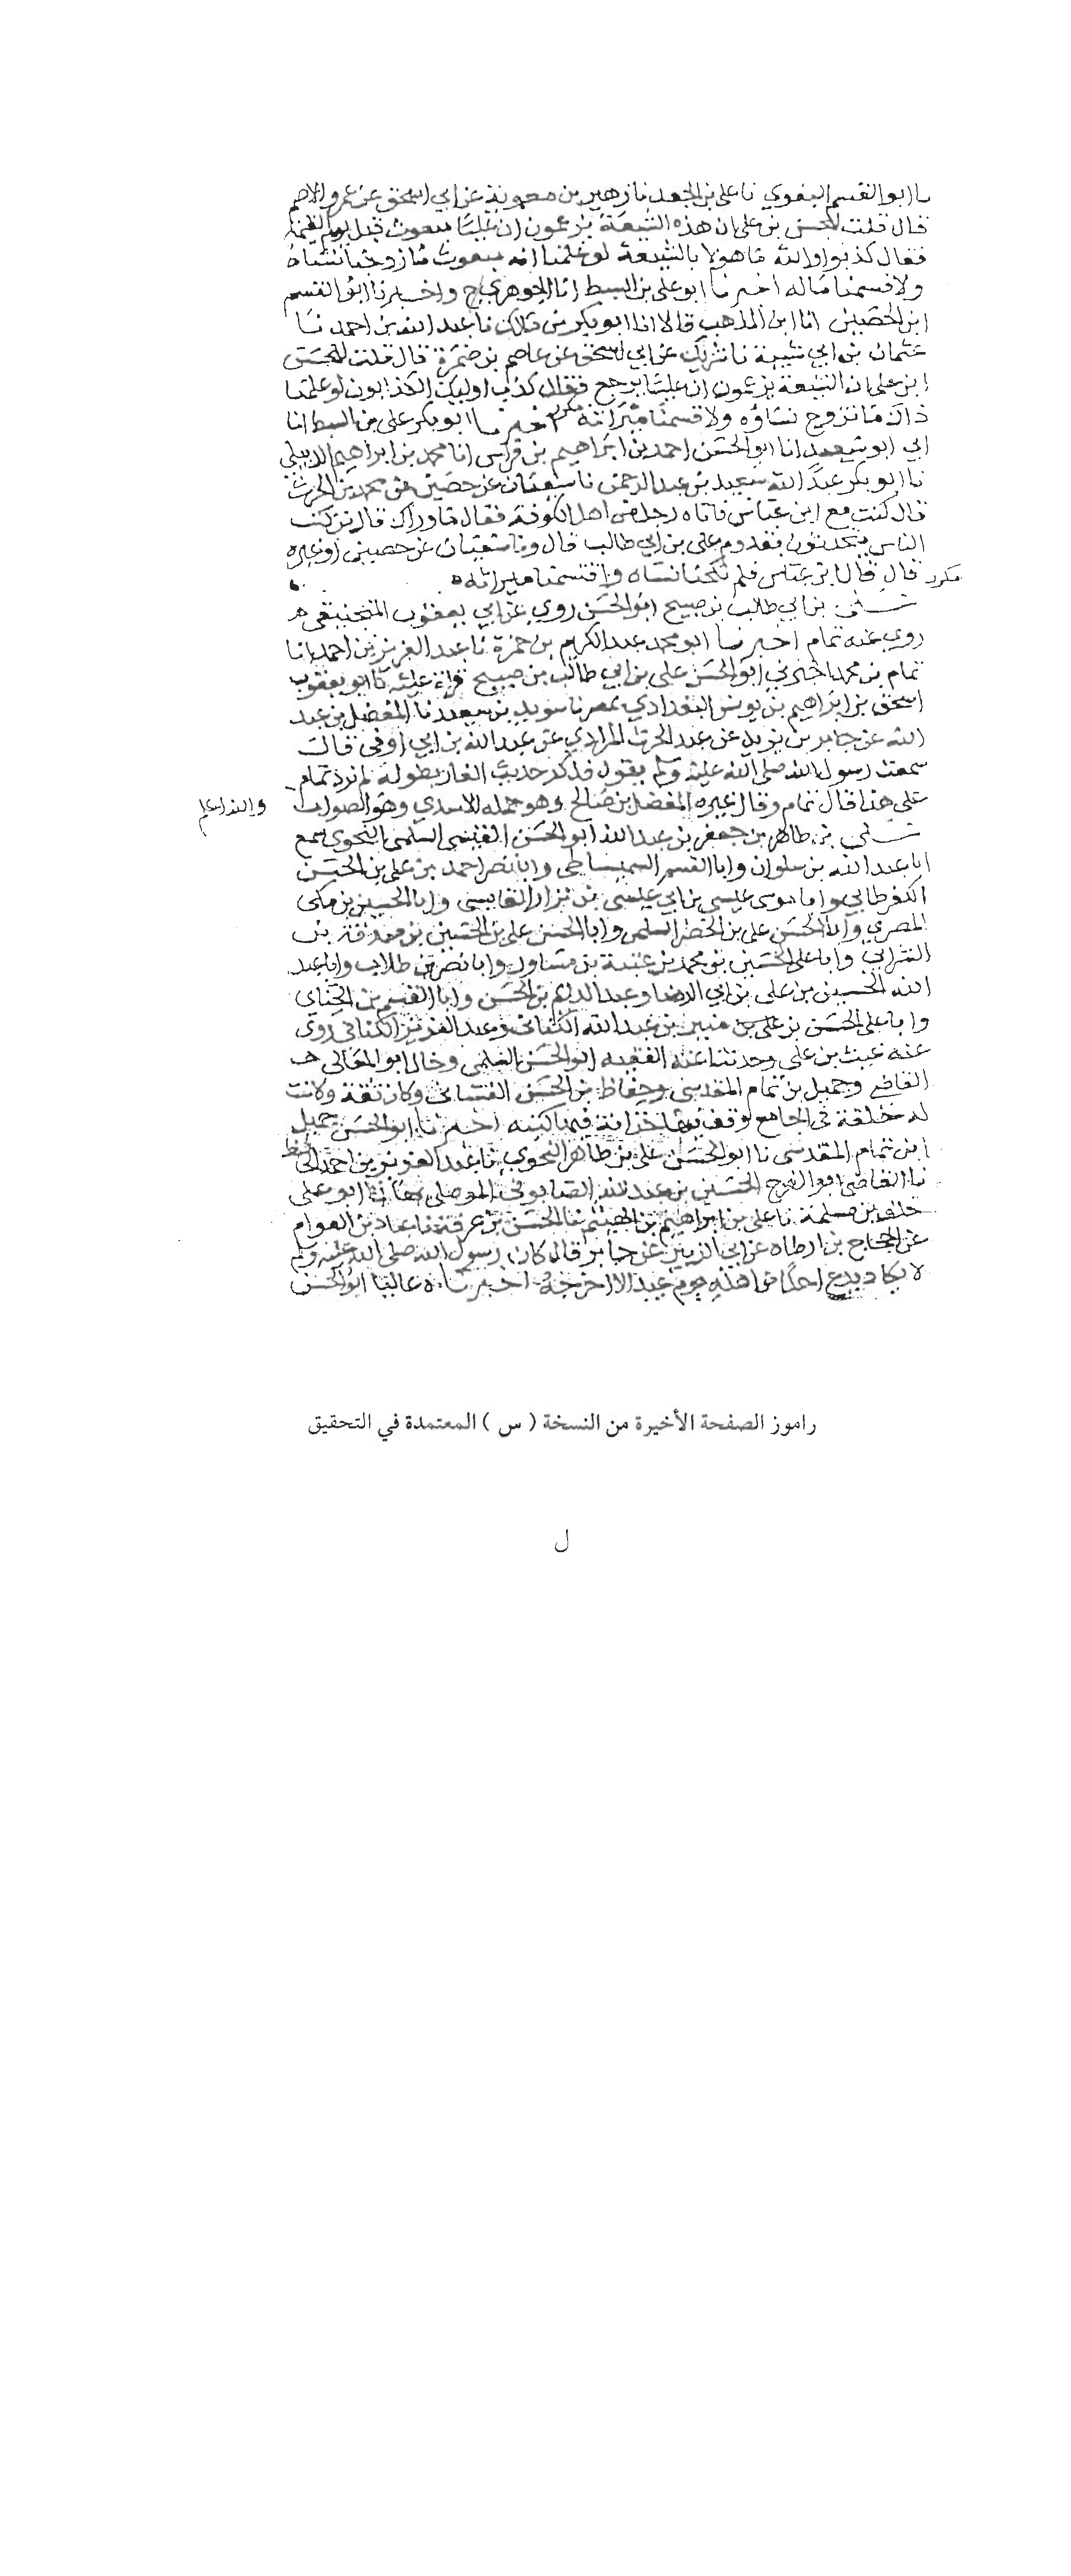 نا ابو القسم البغوي نا علي بن الجعد نا زهير بن معوية عن ابي اسحق عن عمرو الاصم
قال قلت للحسن بن علي ان هذه الشيعة يزعمون ان عليا مبعوث قبل يوم القيمة
فقال كذبوا والله ما هولا بالشيعة لو علمنا انه مبعوث ما زوجنا نساه
ولا قسمنا ماله اخبرنا ابو علي بن السبط انا الجوهري ح واخبرنا ابو القسم
ابن الحصين انا ابن المذهب قالا انا ابو بكر بن مالك نا عبد الله بن احمد نا
عثمان بن ابي شيبة نا شريك عن ابي اسحق عن عاصم بن ضمرة قال قلت للحسن
ابن علي ان الشيعة يزعمون ان عليا يرجع فقال كذب اوليك الكذابون لو علمنا
ذاك ما تزوج نساؤه ولا قسمنا ميراثه اخبرنا ابو بكر علي بن السبط انا
ابي ابو سعيد انا ابو الحسن احمد بن ابراهيم بن فراس انا محمد بن ابراهيم الديبلي
نا ابو بكر عبد الله سعيد بن عبد الرحمن نا سفيان عن حصين عن محمد بن الحرث
قال كنت مع ابن عباس فاتاه رجل من اهل الكوفة فقال ما وراك قال تركت
الناس يتحدثون بقدوم علي بن ابي طالب قال ونا سفيان عن حصين او غيره
مكرر قال قال ابن عباس فلم نكحنا نساه واقتسمنا ميراثه
علي بن ابي طالب بن صبيح ابو الحسن روي عن ابي يعقوب المنجنيقي
روي عنه تمام اخبرنا ابو محمد عبد الكريم بن حمزة نا عبد العزيز بن احمد انا
تمام بن محمد اخبرني ابو الحسن علي بن ابي طالب بن صبيح قراءة عليه نا ابو يعقوب
اسحق بن ابراهيم بن يونس البغدادي بمصر نا سويد بن سعيد نا المفضل بن عبد
الله عن جابر بن يزيد عن عبد الحرث المرادي عن عبد الله بن ابي اوفي قال
سمعت رسول الله صلى الله عليه وسلم يقول فذكر حديث الغار بطوله لم يزد تمام
على هذا قال تمام وقال غيره المفضل بن صالح وهو جميله الاسدي وهو الصواب والله اعلم
علي بن طاهر بن جعفر بن عبد الله ابو الحسن القيسي السلمي النحوي سمع
ابا عبد الله بن سلوان وابا القسم السميساطي وابا نصر احمد بن علي بن الحسن
الكفرطابي وابا موسى عيسى بن ابي عيسى بن نزار القابسي وابا الحسين بن مكي
المصري وابا الحسن علي بن الخضر السلمي وابا الحسن علي بن الحسين بن صدقة بن
الشرابي وابا علي الحسين بن محمد بن عتبة بن مساور وابا نصر بن طلاب وابا عبد
الله الحسين بن علي بن ابي الرضا وعبد الدايم بن الحسن وابا القسم بن الحناي
وابا علي الحسن بن علي بن منير بن عبد الله الكناني وعبد العزيز الكتاني روى
عنه غيث بن علي وحدثنا عنه الفقيه ابو الحسن السلمي وخالي ابو المعالي
القاضي وجميل بن تمام المقدسي وحفاظ بن الحسن الغساني وكان ثقة وكانت
له حلقة في الجامع وقف فيها خزانة فيها كتبه اخبرنا ابو الحسن جميل
ابن تمام المقدسي نا ابو الحسن علي بن طاهر النحوي نا عبد العزيز بن احمد الحافظ
نا القاضي ابو الفرج الحسين بن عبد الله الصابوني الموصلي بها نا ابو علي
خلف بن مسلمة نا علي بن ابراهيم بن الهيثم نا الحسن بن عرفة نا عباد بن العوام
عن الحجاج بن ارطاه عن ابي الزبير عن جابر قال كان رسول الله صلى الله عليه وسلم
لا يكاد يدع احدا من اهله يوم عيد الا اخرجه اخبرناه عاليا ابو الحسن
راموز الصفحة الأخيرة من النسخة ( س ) المعتمدة في التحقيق
ل